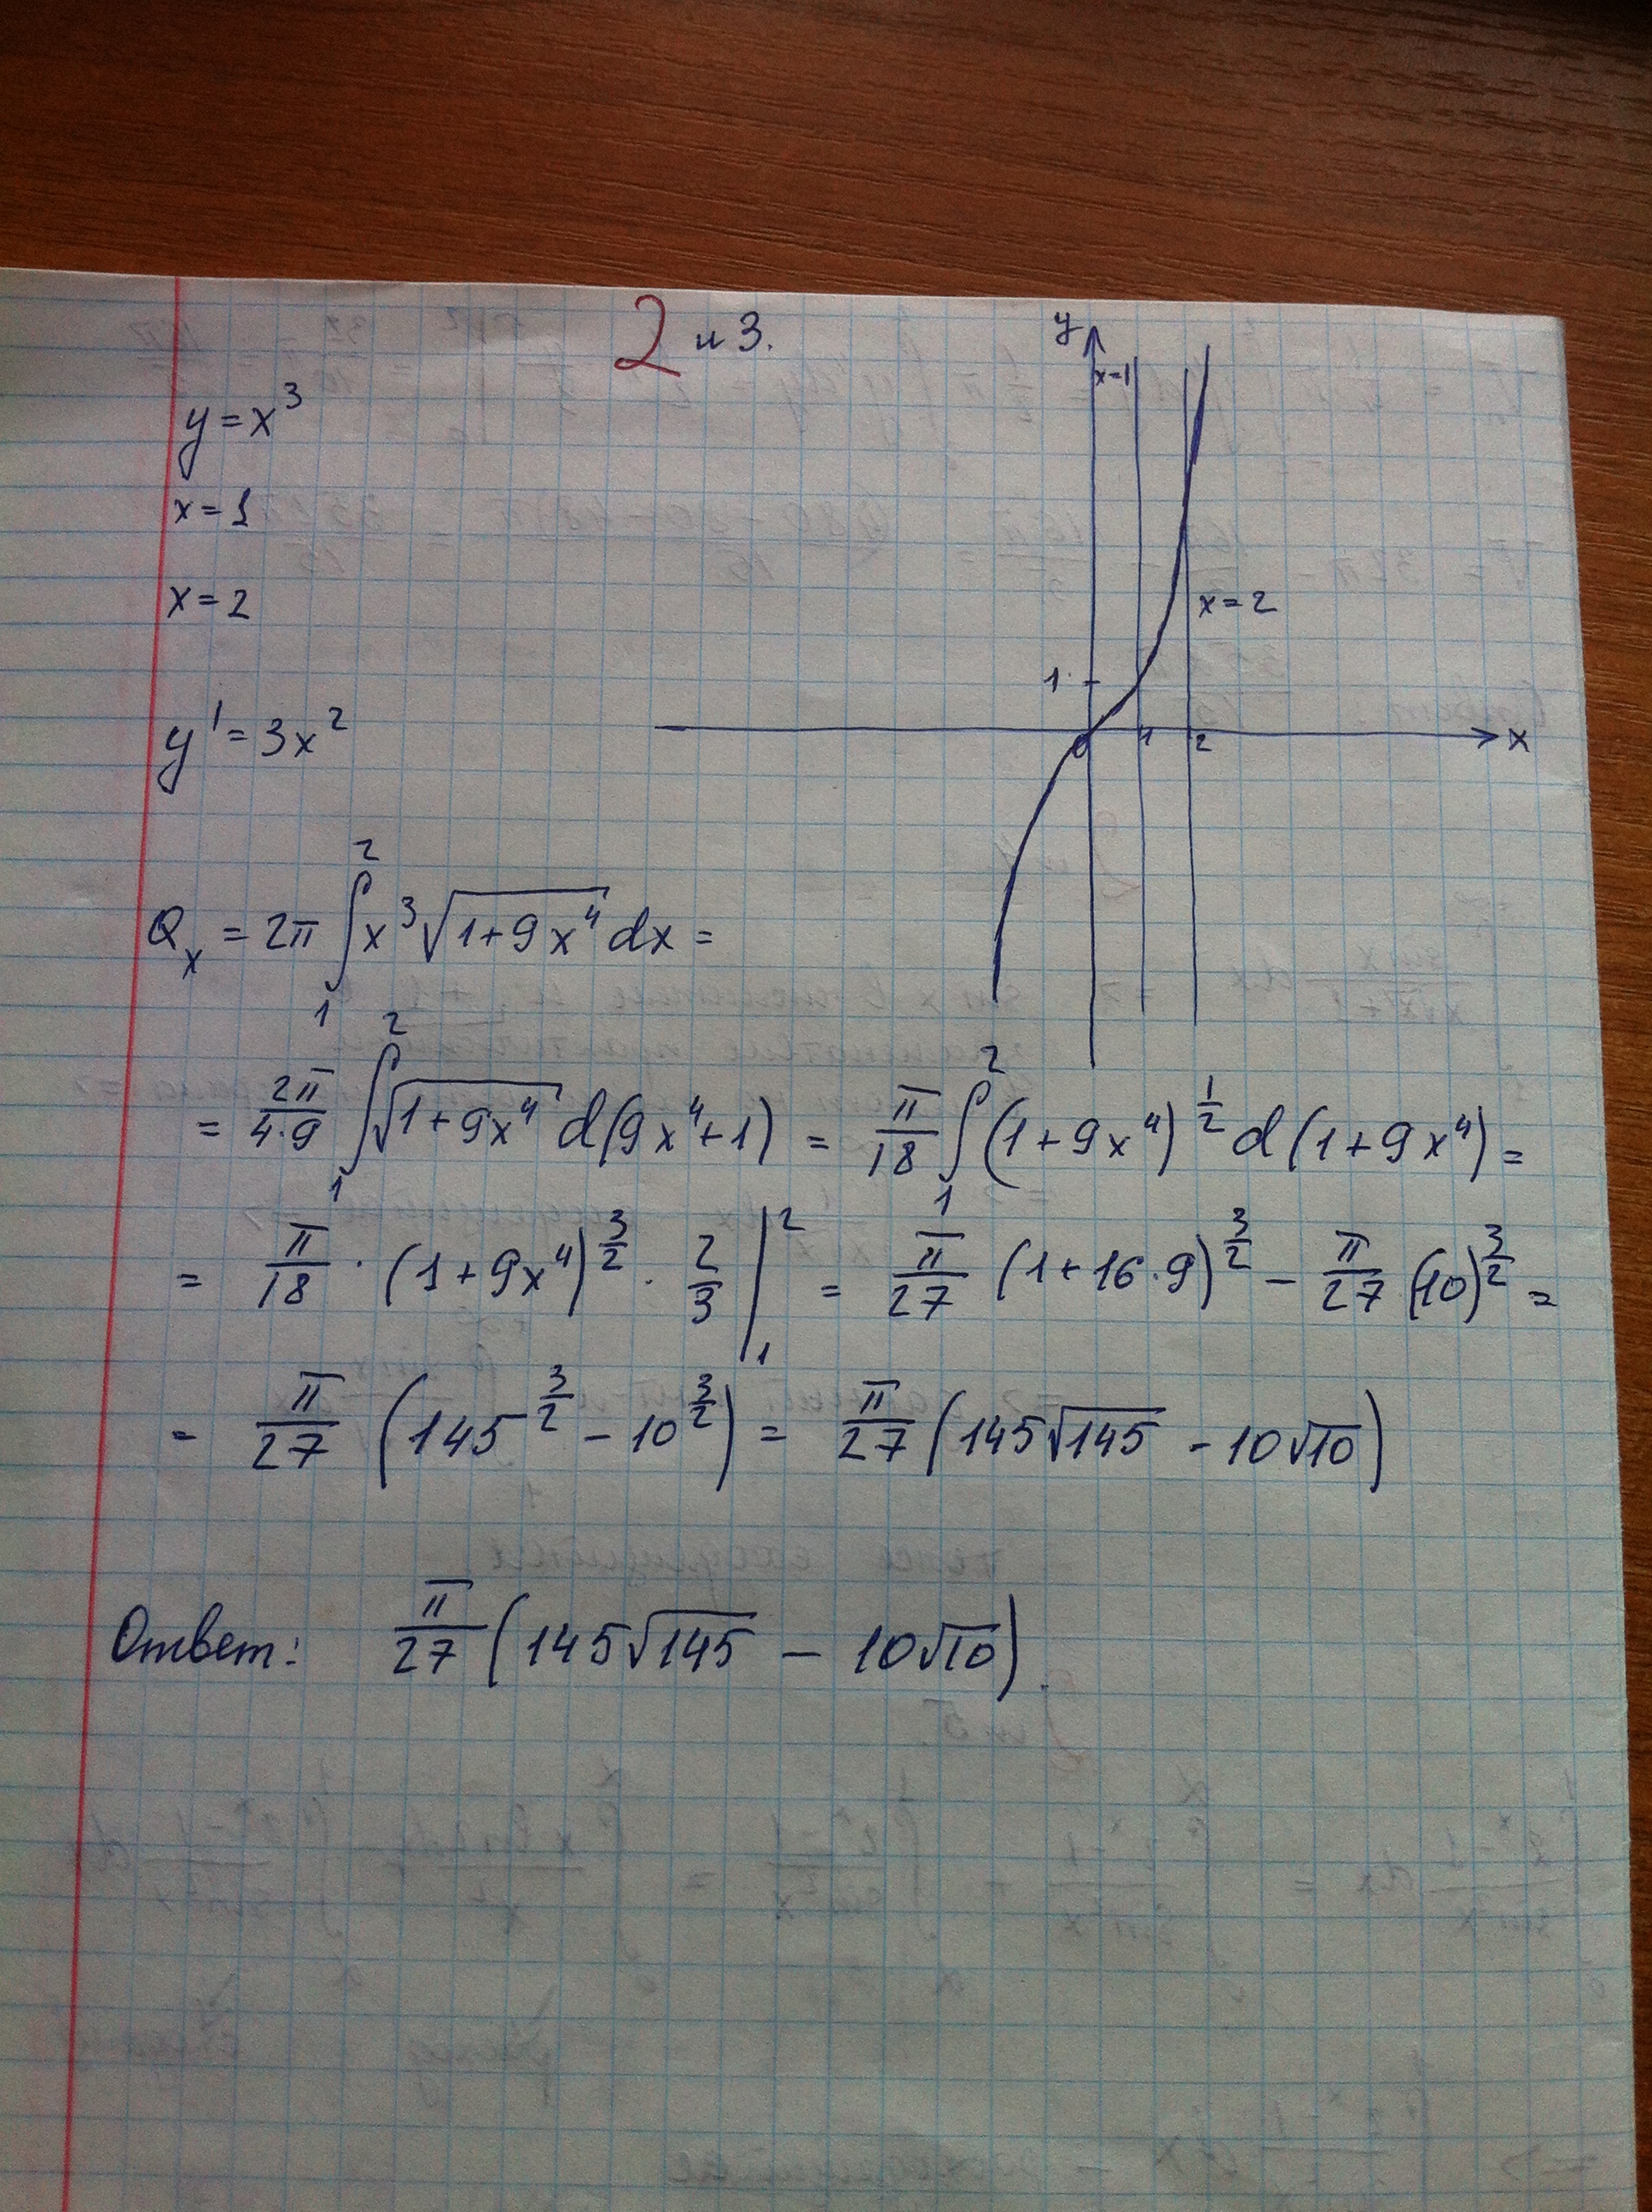 2 и 3.
y = x³
x = 1
x = 2
y' = 3x²
y
x=1
x = 2
1
0 1 2 x
Qₓ = 2π ∫₁² x³√(1+9x⁴) dx =
= 2π/(4·9) ∫₁² √(1+9x⁴) d(9x⁴+1) = π/18 ∫₁² (1+9x⁴)^(1/2) d(1+9x⁴) =
= π/18 · (1+9x⁴)^(3/2) · 2/3 |₁² = π/27 (1+16·9)^(3/2) − π/27 (10)^(3/2) =
= π/27 (145^(3/2) − 10^(3/2)) = π/27 (145√145 − 10√10)
Ответ: π/27 (145√145 − 10√10).